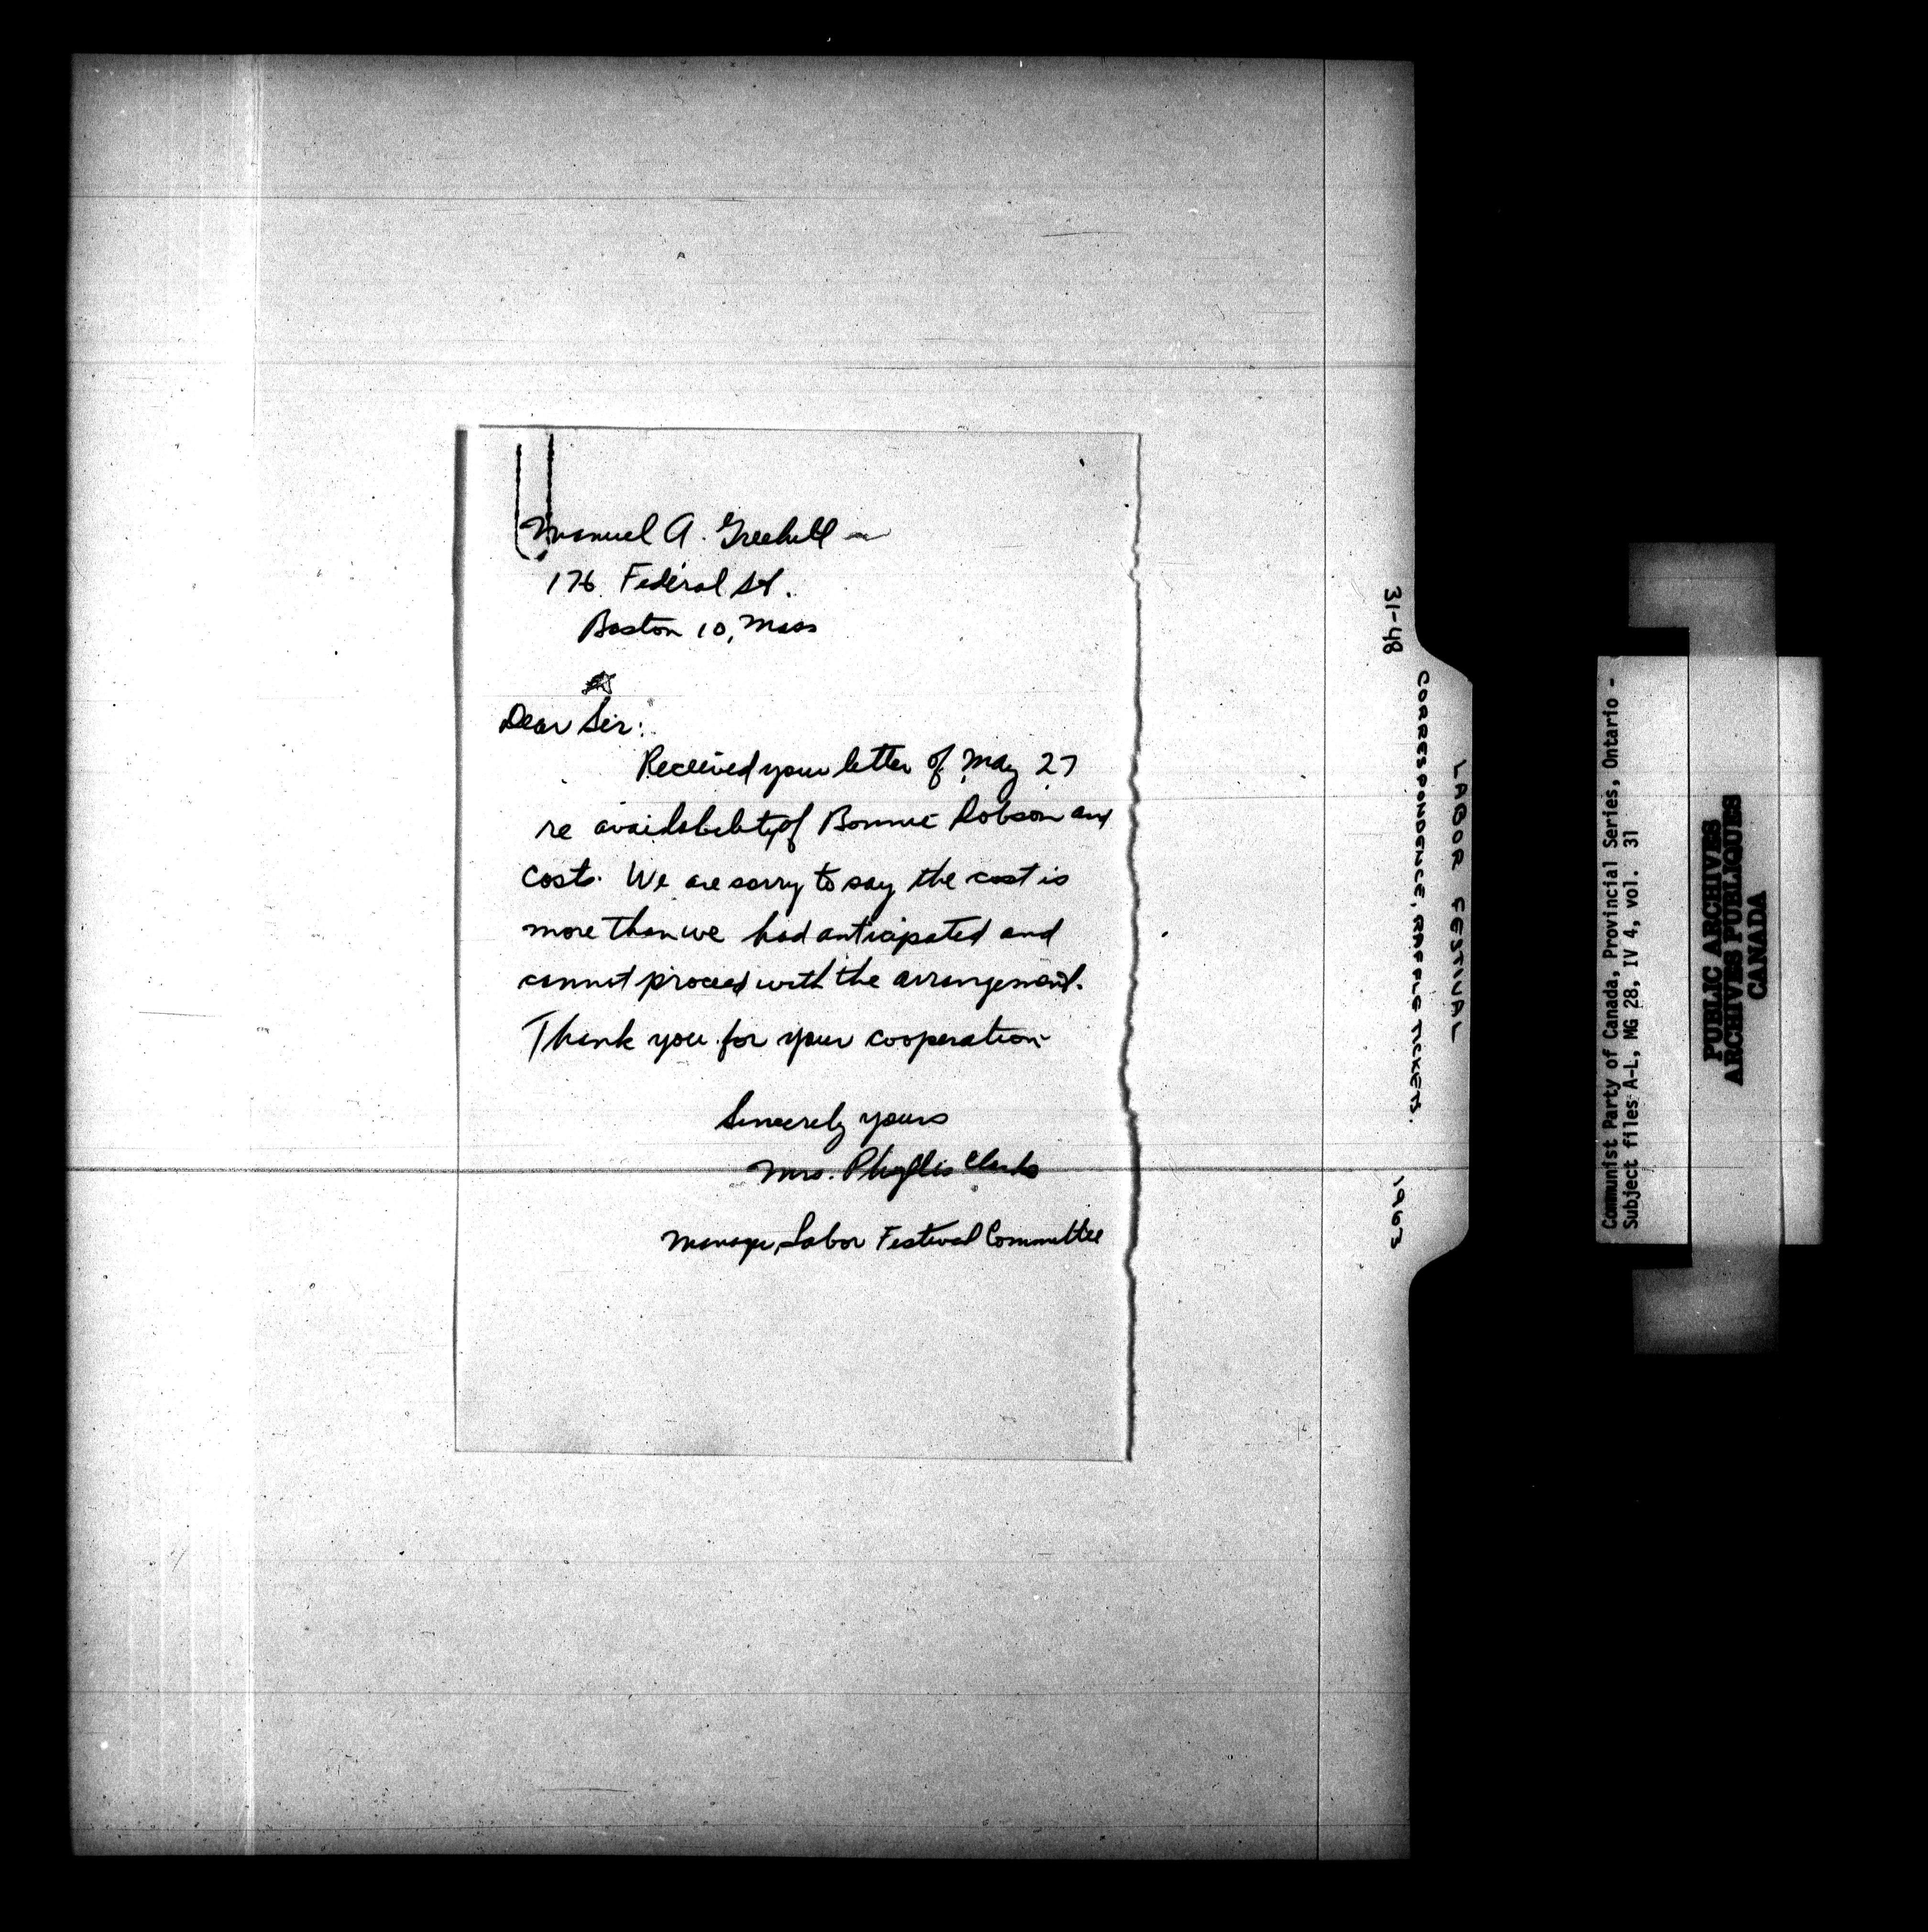 Manuel A. Greehill
176 Federal St.
Boston 10, Mass
Dear Sir:
Received your letter of May 27
re availability of Bonnie Dobson and
costs. We are sorry to say the cost is
more than we had anticipated and
cannot proceed with the arrangement.
Thank you for your cooperation
Sincerely yours
Mrs. Phyllis Clarke
Manager, Labor Festival Committee
31-48
LABOR FESTIVAL
CORRESPONDENCE, RAFFLE TICKETS.
1963
Communist Party of Canada, Provincial Series, Ontario -
Subject files A-L, MG 28, IV 4, vol. 31
PUBLIC ARCHIVES
ARCHIVES PUBLIQUES
CANADA